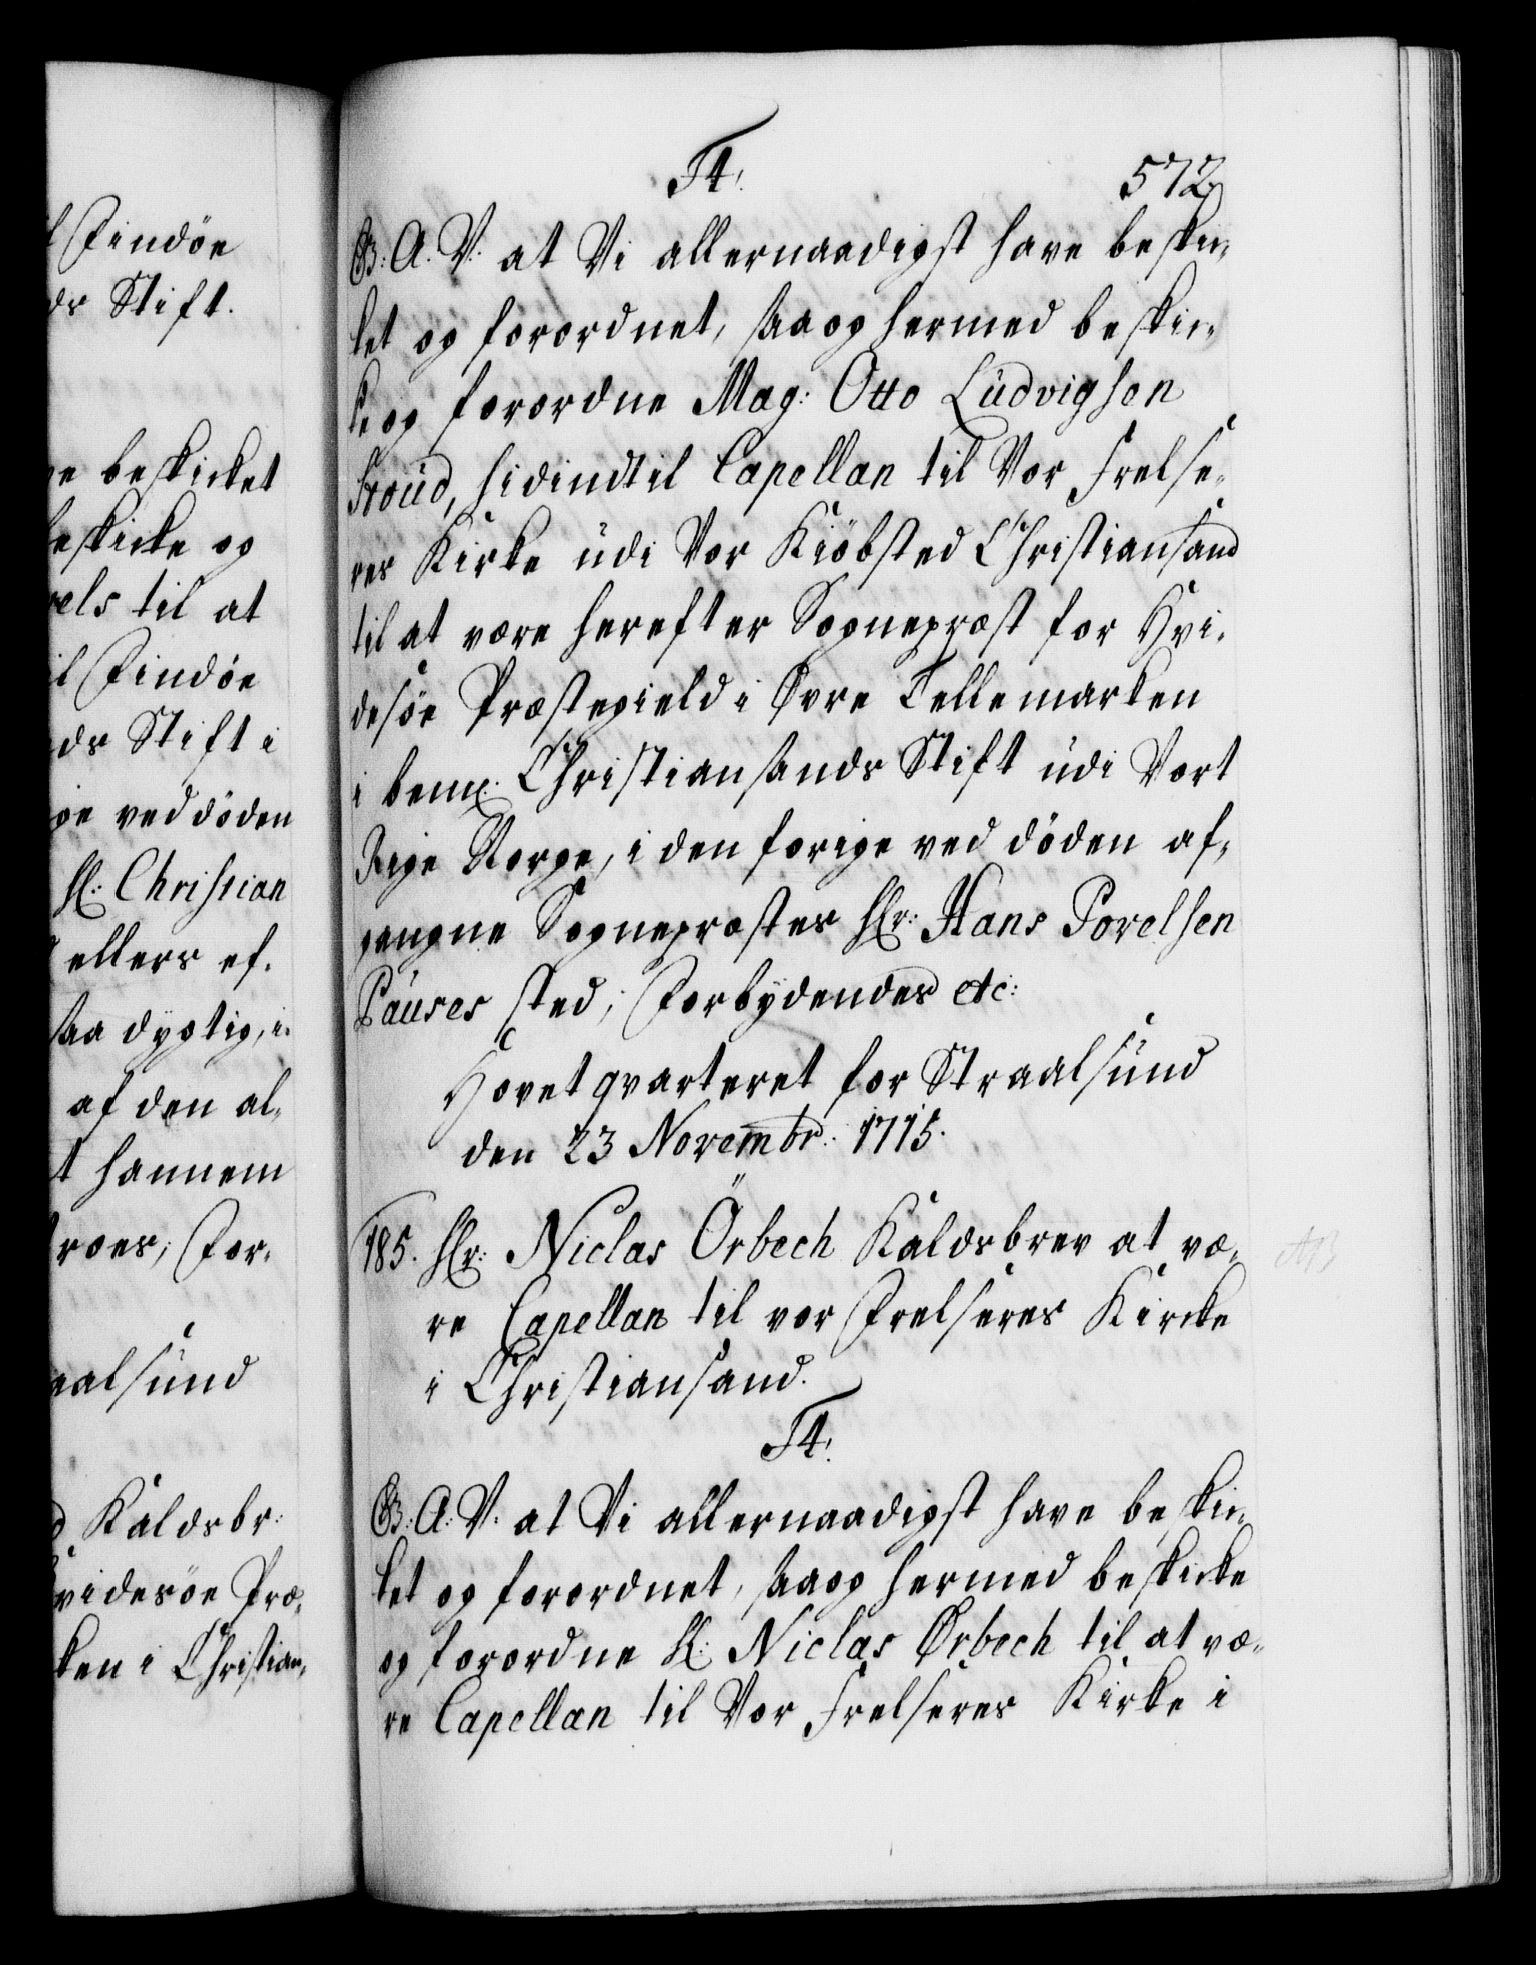 l Findöe
ds Stift.
ve beskicket
beskicke og
rels til at
il Findöe
ds Stift i
ge ved döden
Hl: Christian
ellers ef-
saa dygtig, i-
af den al-
t hannem
troer; For-
aalsund
d Kaldsbr:
Hvidesöe Præ-
ken i Christian-
F4!
572
G: A: V: at Vi allernaadigst have beskic-
ket og forordnet, saa og hermed beskic-
ke og forordne Mag: Otto Ludvigsen
Stoud, hidindtil Capellan til Vor Frelse-
res Kirke udi Vor Kiöbsted Christiansand
til at være herefter Sognepræst for Hvi-
desöe Præstegield i Øvre Tellemarken
i bem: Christiansands Stift udi Vort
Rige Norge, i den forige ved döden af-
gangne Sognepræstes Hr: Hans Povelsen
Pauses sted; Forbydendes etc:
Hovetqvarteret for Straalsund
den 23 Novembr: 1715.
185. Hr: Niclas Örbech Kaldsbrev at væ-
re Capellan til vor Frelseres Kircke
i Christiansand.
F4!
G: A: V: at Vi allernaadigst have beskic-
ket og forordnet, saa og hermed beskicke
og forordne Hl: Niclas Ørbech til at væ-
re Capellan til Vor Frelseres Kirke i